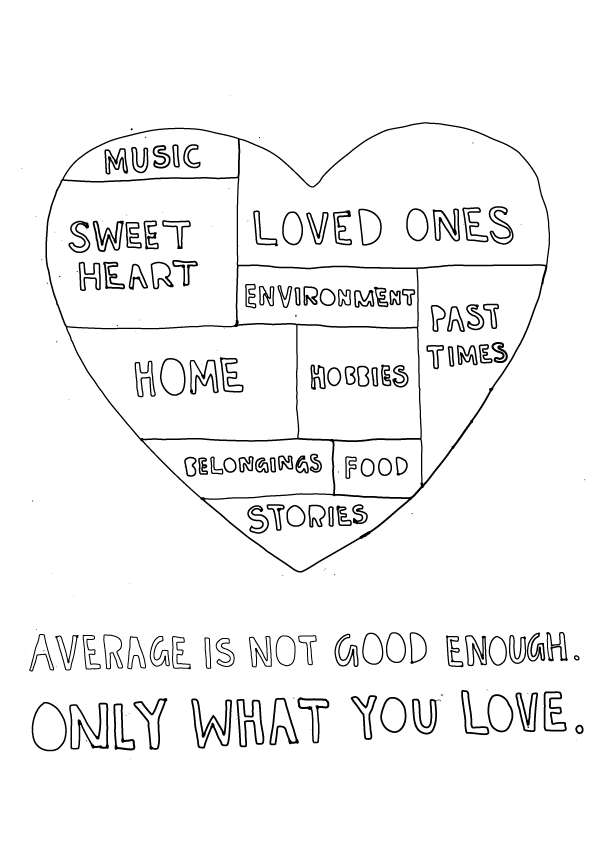 MUSIC
LOVED ONES
SWEET
HEART
ENVIRONMENT
PAST
TIMES
HOME
HOBBIES
BELONGINGS
FOOD
STORIES
AVERAGE IS NOT GOOD ENOUGH.
ONLY WHAT YOU LOVE.